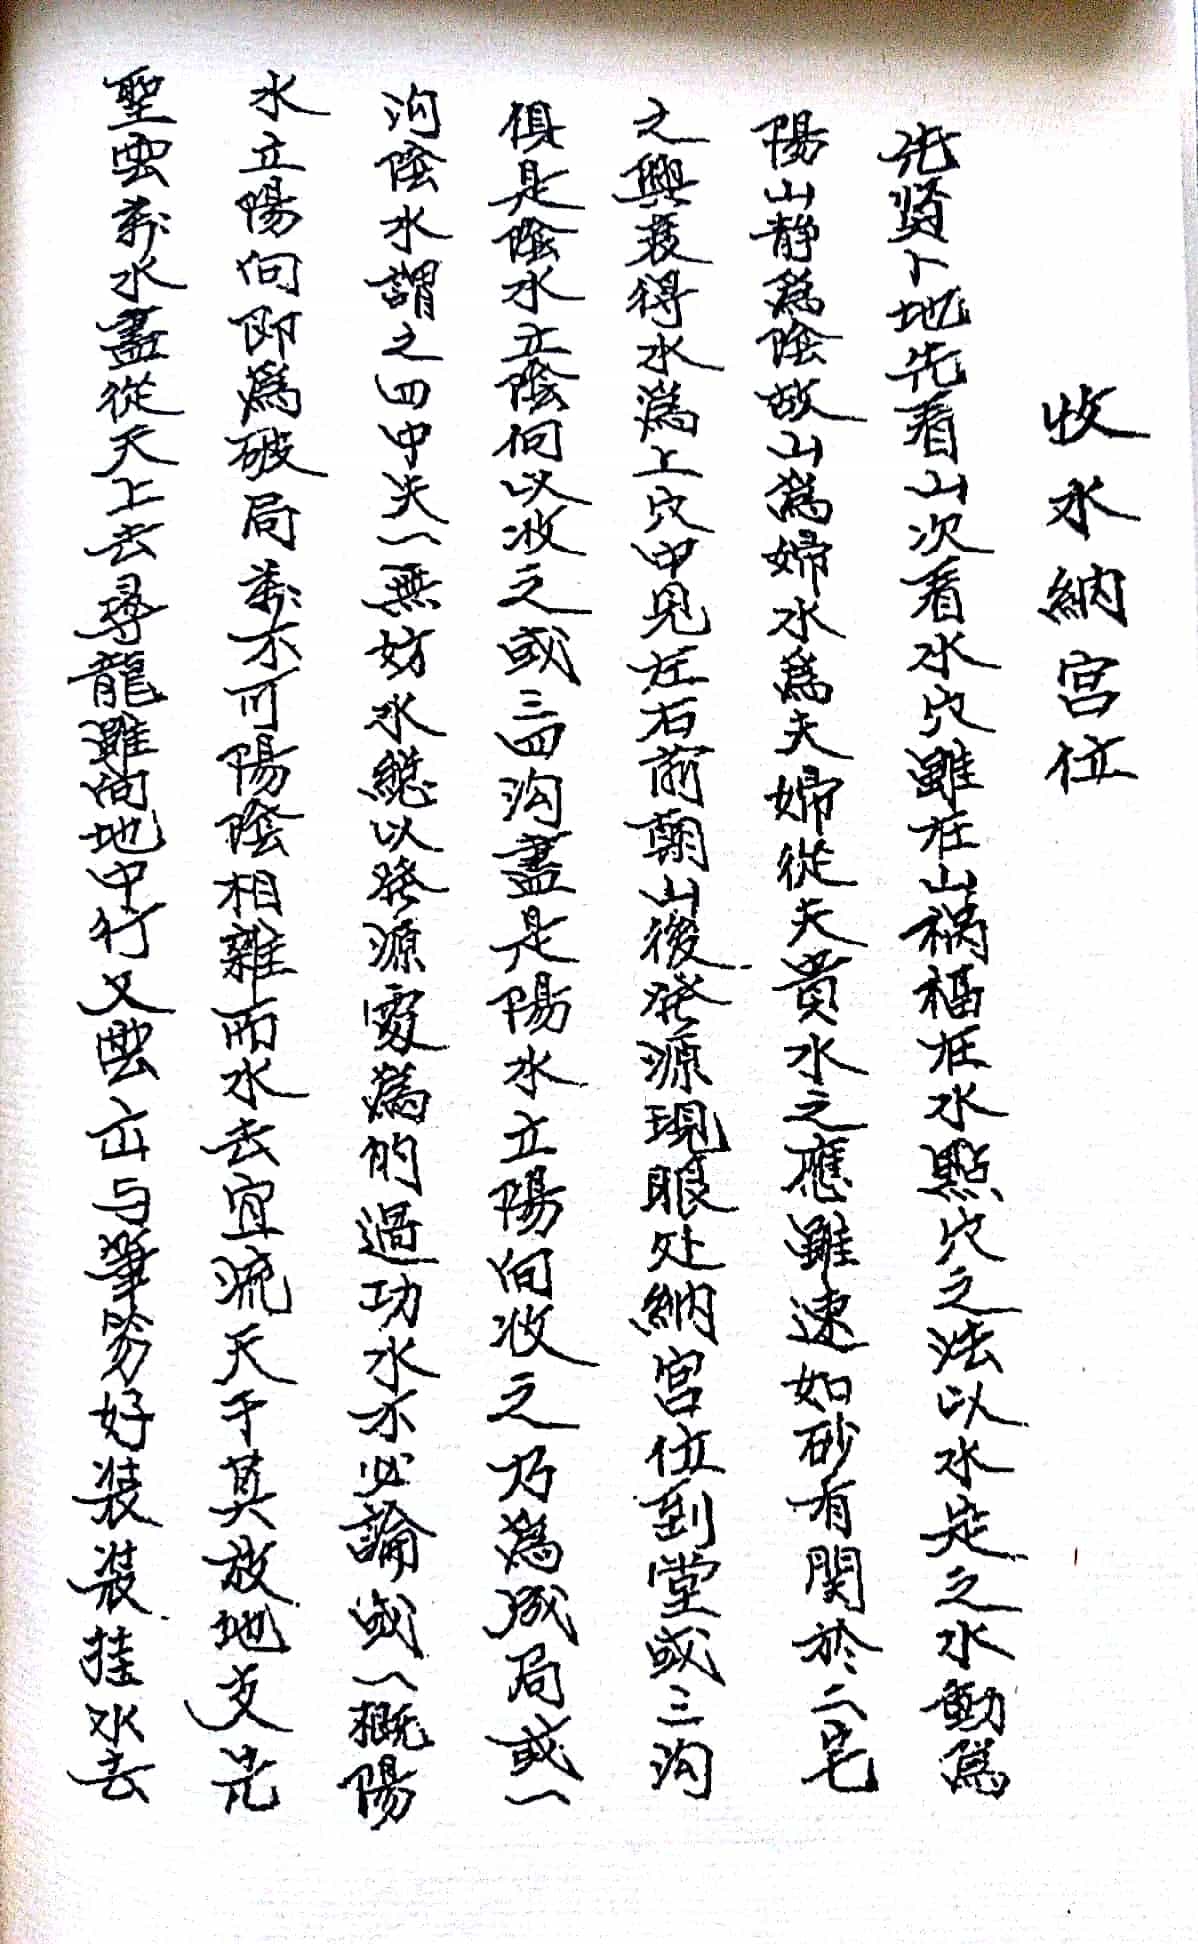 收水納宫位
先贤卜地先看山次看水穴雖在山祸福在水點穴之法以水定之水動為
陽山静為陰故山為婦水為夫婦從夫貴水之應雖速如砂有関於二宅
之興衰得水為上穴中見左右前朝山後発源現眼处納宫位到堂或三沟
俱是陰水立陰向以收之或三四沟盡是陽水立陽向收之乃為成局或一
沟陰水謂之四中失一無妨水總以発源處為的過功水不必論或一概陽
水立陽向即為破局萬不可陽陰相雜而水去宜流天干莫放地支先
聖雲萬水盡從天上去尋龍雖向地中行又雲立与筆劳好装装挂水去